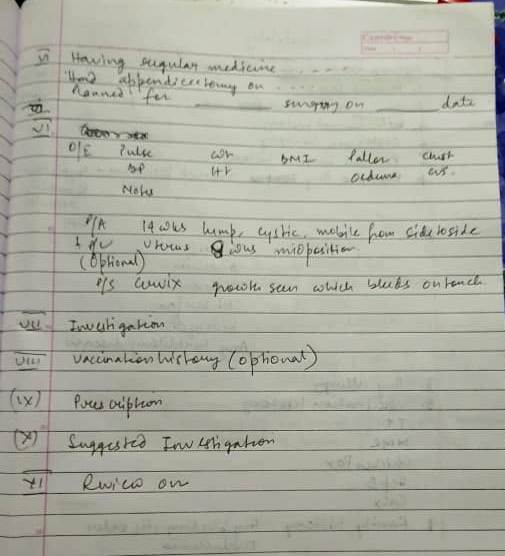 V Having regular medicine ....
Had appendicectomy on ....
Planned for ______ surgery on ______ date
VI
O/E Pulse wt BMI Pallor chest
BP Ht Oedema cvs.
Notes
P/A 14 wks lump, cystic, mobile from side to side
+ P/V Uterus 8 wks midposition.
(Optional)
P/S Cervix growth seen which bleeds on touch.
VII Investigation
VIII Vaccination history (optional)
(IX) Prescription
(X) Suggested Investigation
XI Review on